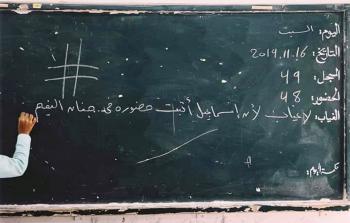 اليوم: السبت
التاريخ: 2019.11.16
السجل: 49
الحضور: 48
الغياب: لا غياب لأن اسماعيل أثبت حضوره في جنات النعيم